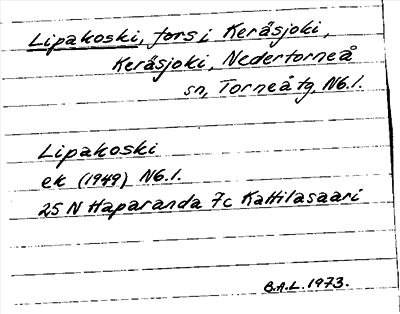 Lipakoski, fors i Keräsjoki,
Keräsjoki, Nedertorneå
sn, Torneå tg, Nb.l.
Lipakoski
ek (1949) Nb.l.
25 N Haparanda 7c Kattilasaari
B.A.L. 1973.